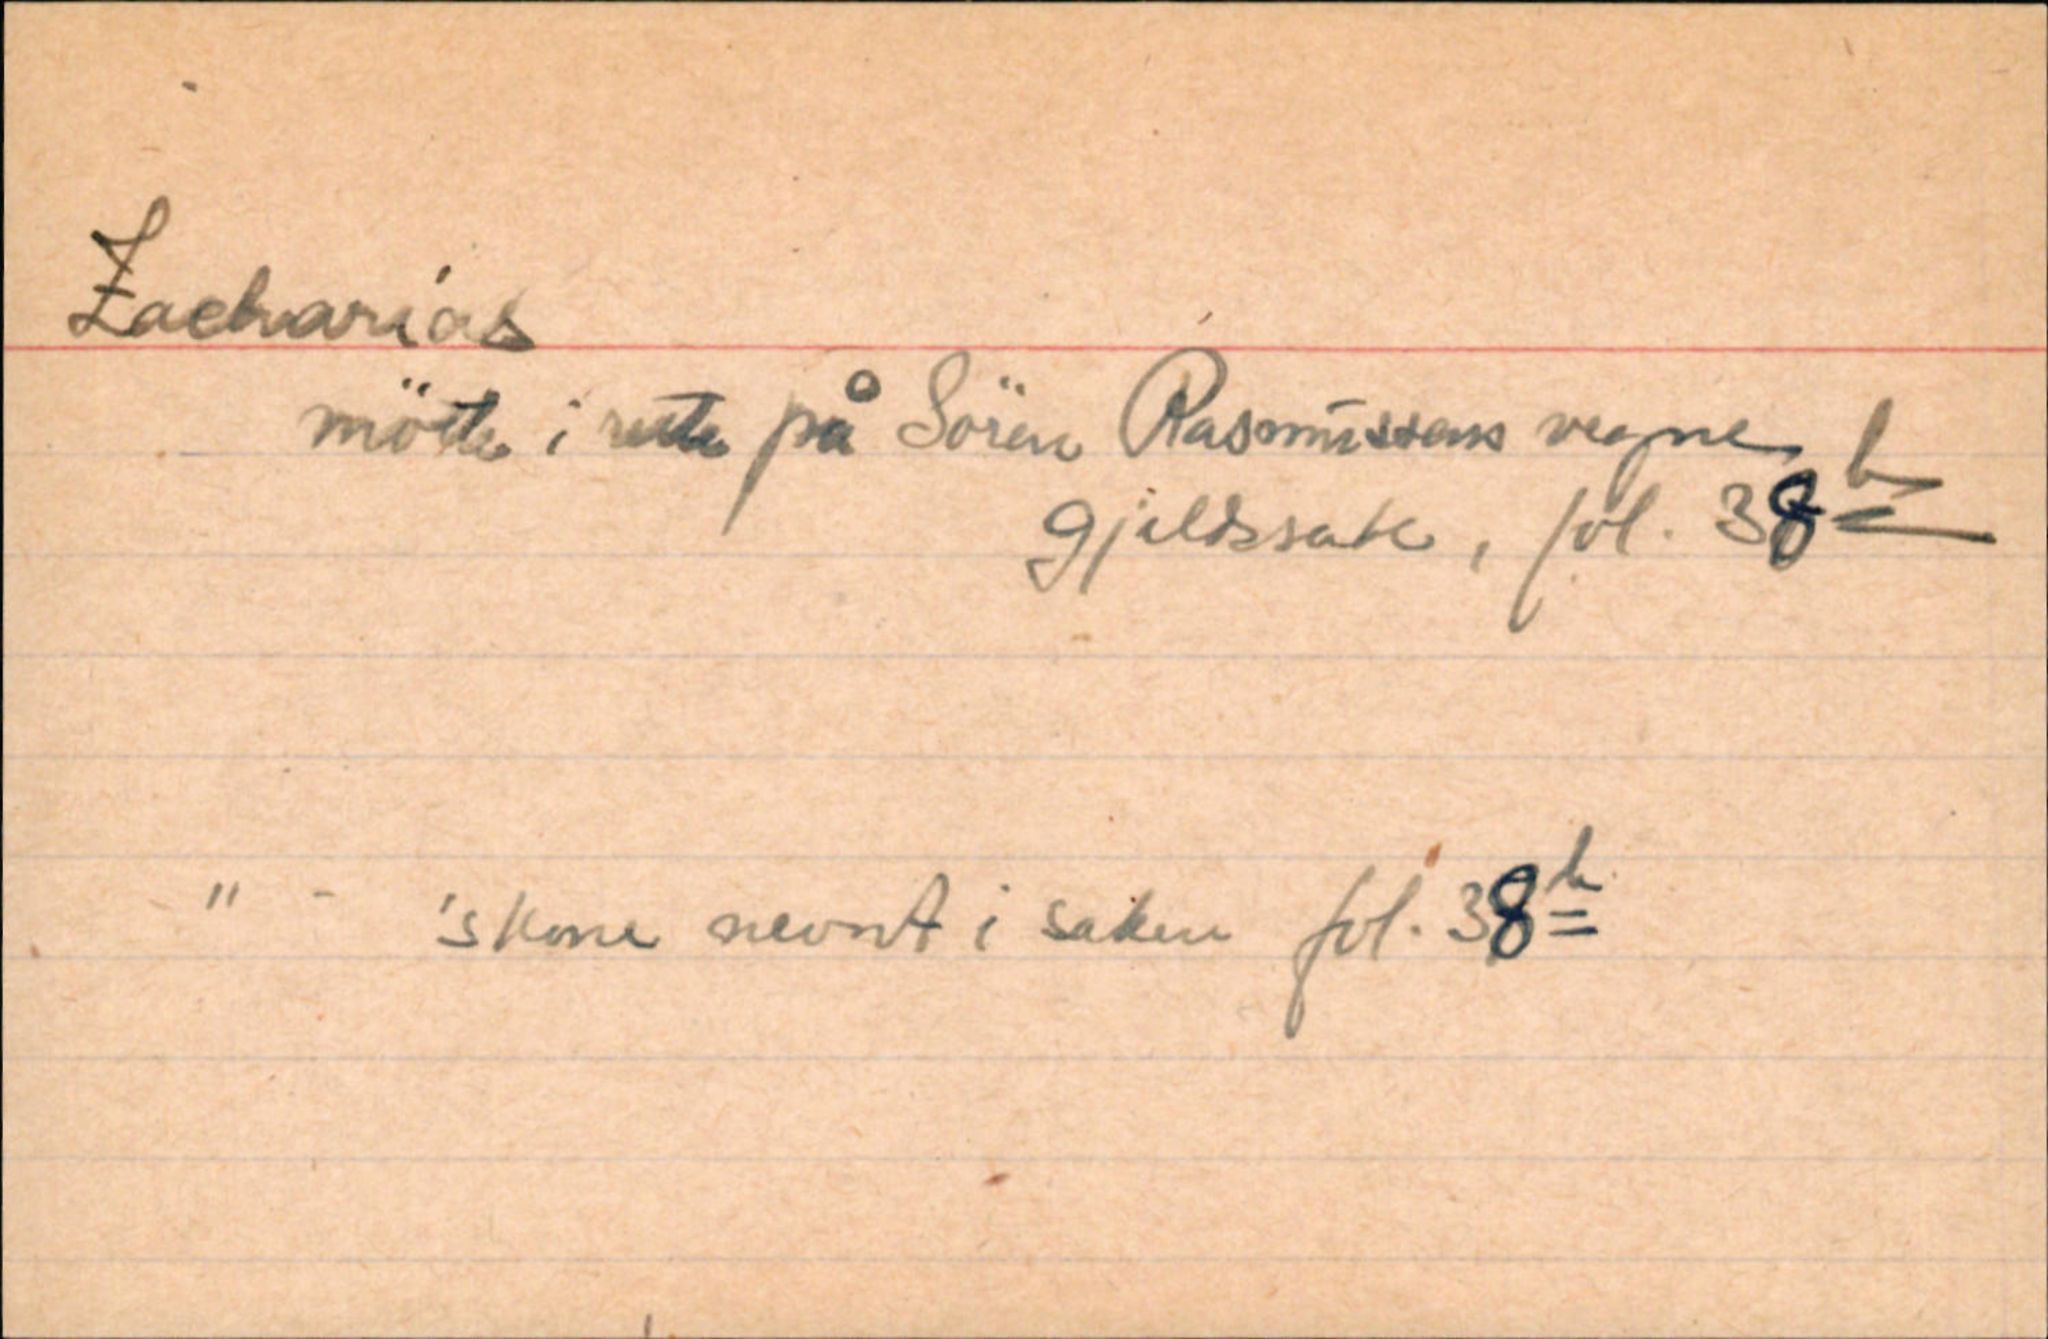 Zacharias
mötte i rette på Sören Rasmussens vegne
gjeldssak, fol. 38 b
" - 's kone nevnt i saken fol. 38 b